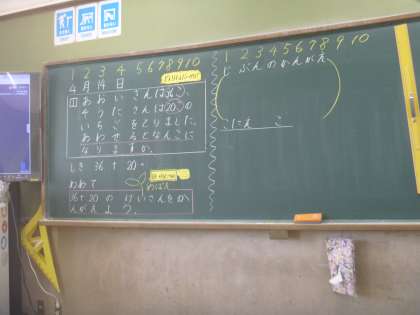 1 2 3 4 5 6 7 8 9 10
4月14日
1 あおいさんは36こ、
そうたさんは20この
いちごをとりました。
あわせるとなんこに
なりますか。
しき 36+20=
めあて
36+20のけいさんをか
んがえよう。
1 2 3 4 5 6 7 8 9 10
じぶんのかんがえ
こたえ こ